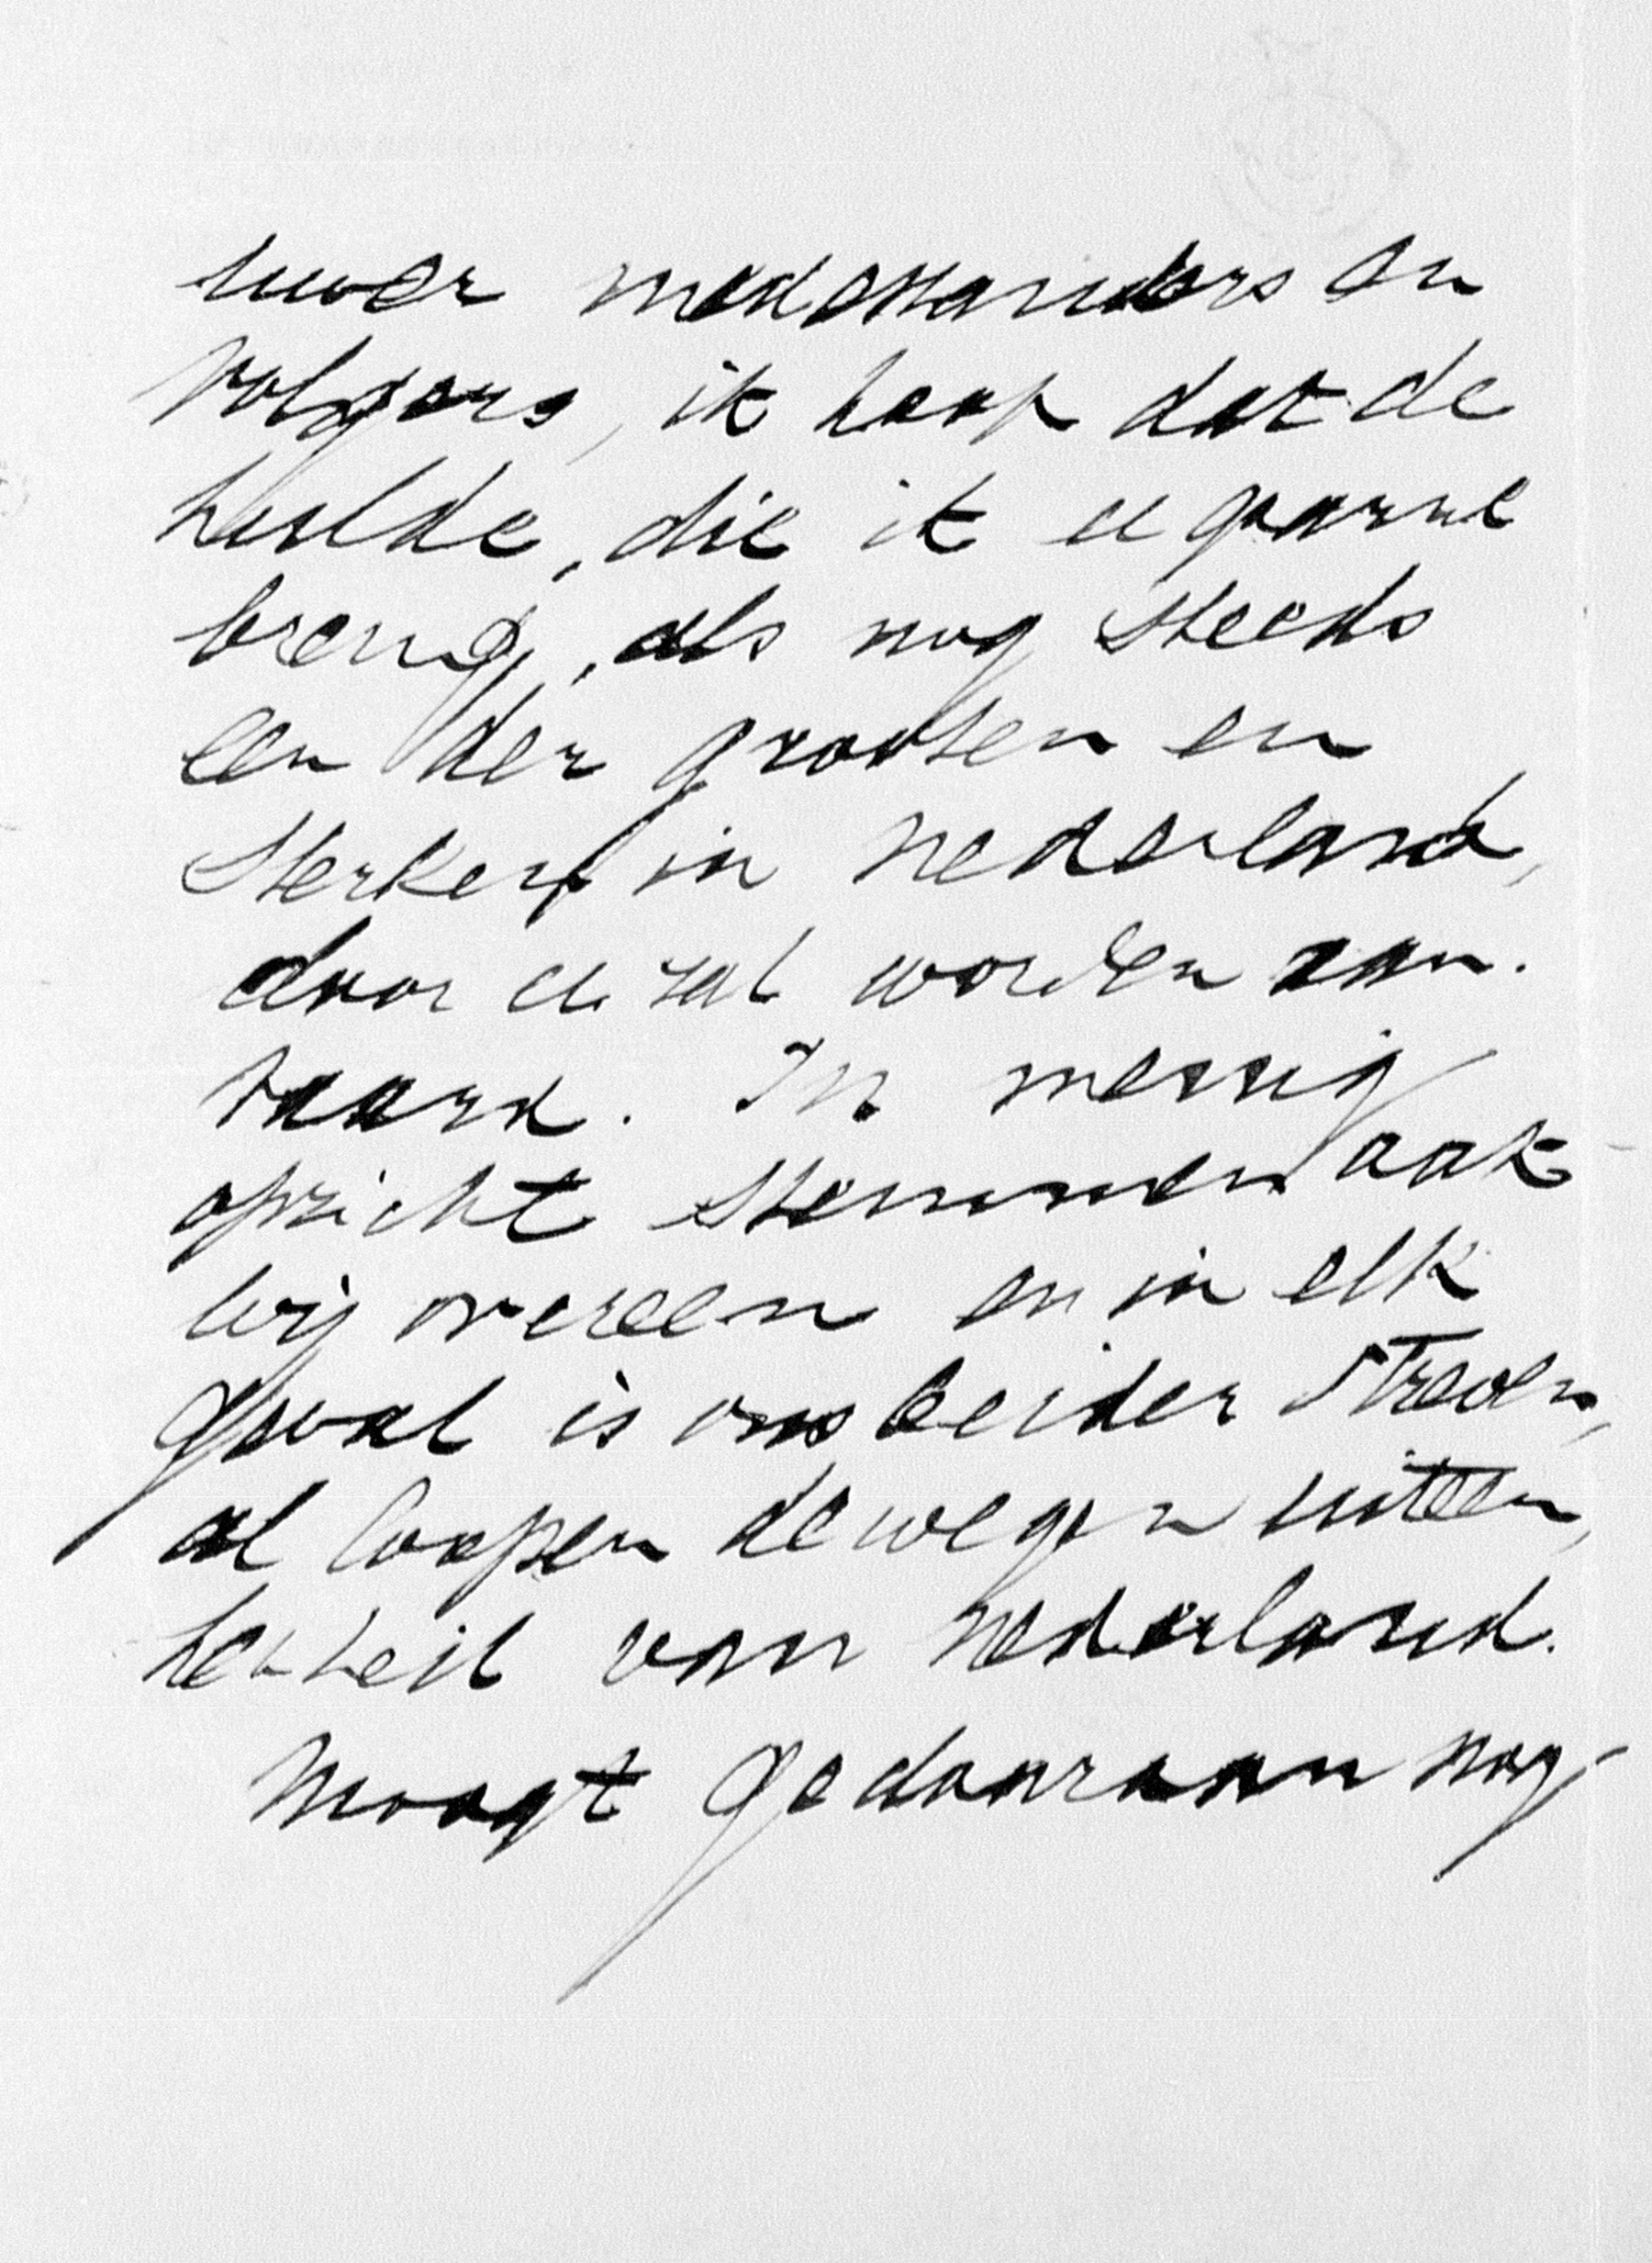 uwer medestanders en
volgers, ik hoop dat de
hulde, die ik u gaarne
breng, als nog steeds
een der grootsen en
sterken in Nederland,
door u zal worden aan-
vaard. In menig
opzicht stemmen ook
wij overeen en in elk
geval is ons beider streven,
al loopen de wegen uiteen,
het heil van Nederland.
Moogt ge daaraan nog